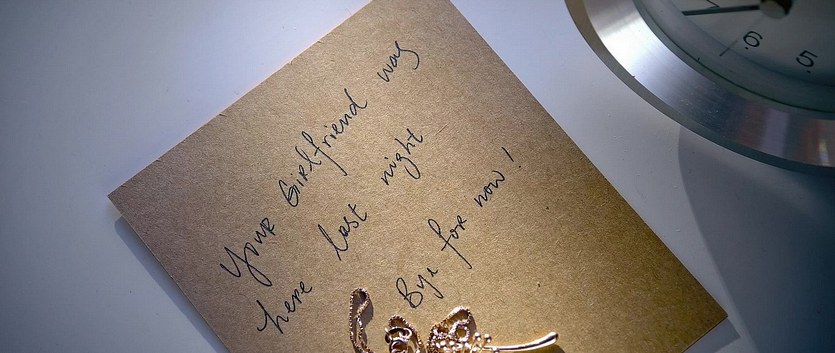 Your Girlfriend was
here last night
Bye for now!
6
5